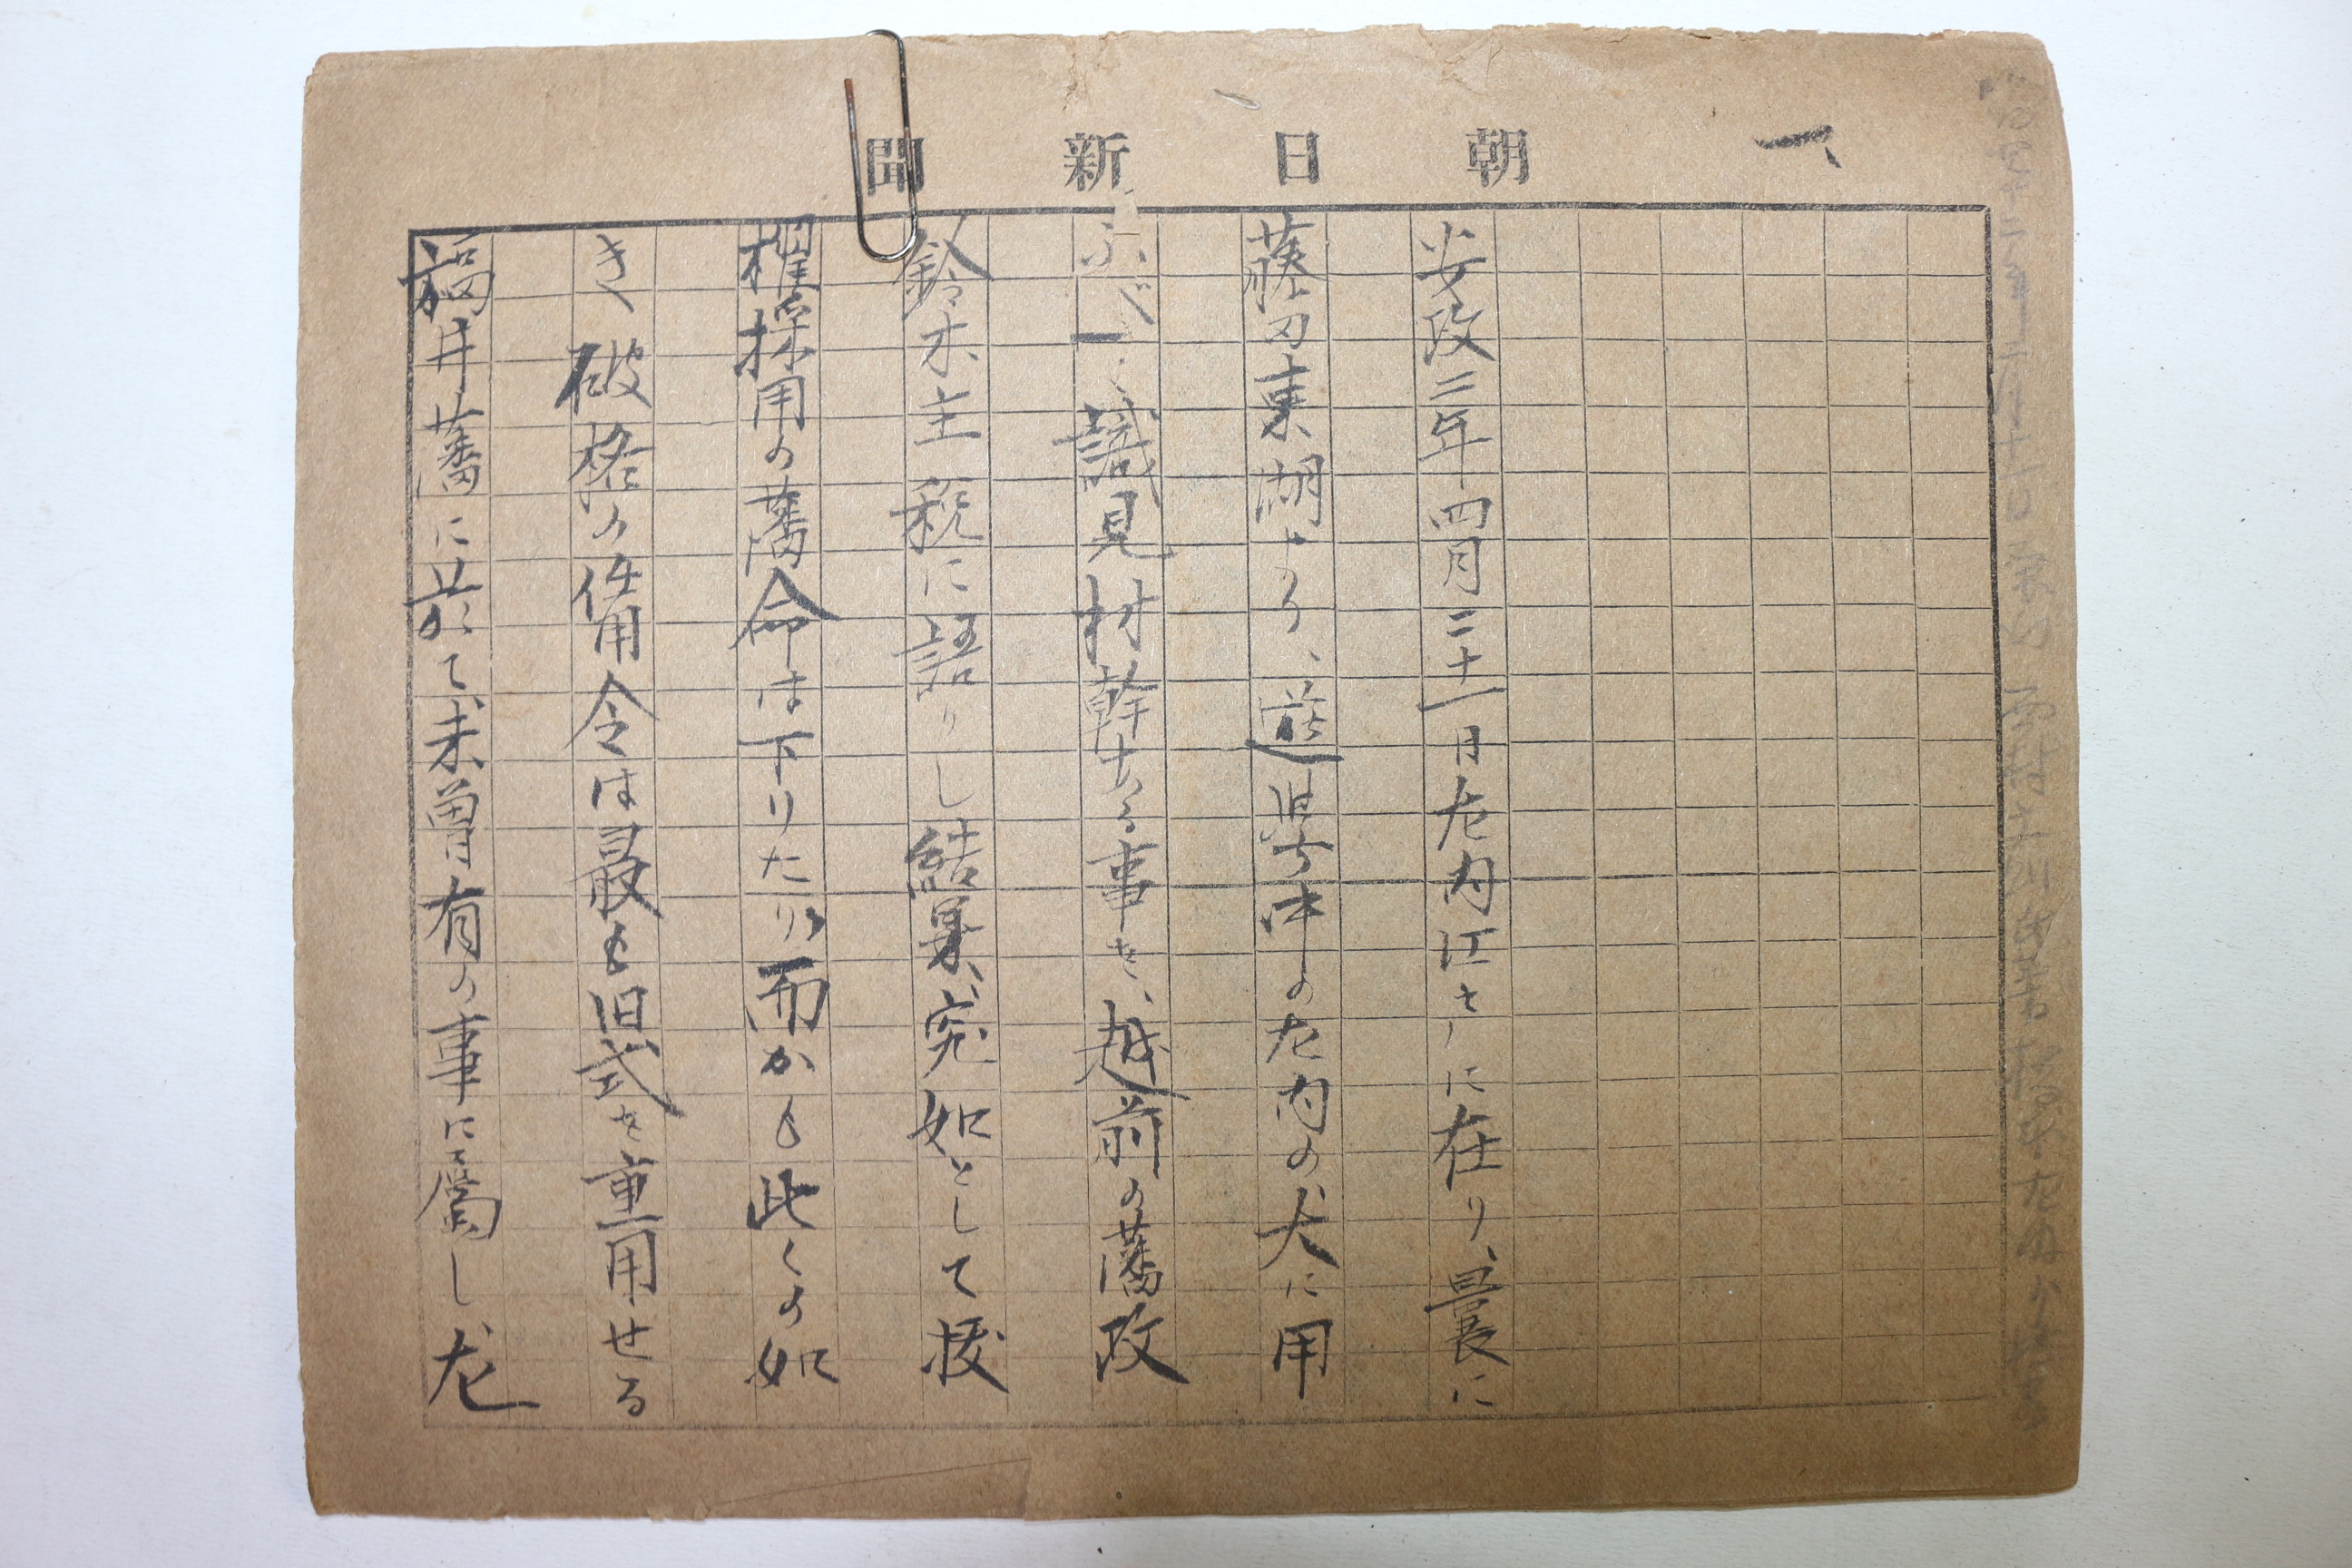 一
朝日新聞
安政三年四月二十一日左内江戸に在り、曩に
藤田東湖より、遊 中の左内の大に用
ふべく識見材幹ある事を、越前の藩政
鈴木主税に語りし結果、突如として抜
擢採用の藩命は下りたり、而かも此くの如
き破格の任用令は最も旧式を重用せる
福井藩に於て未曽有の事に属し左